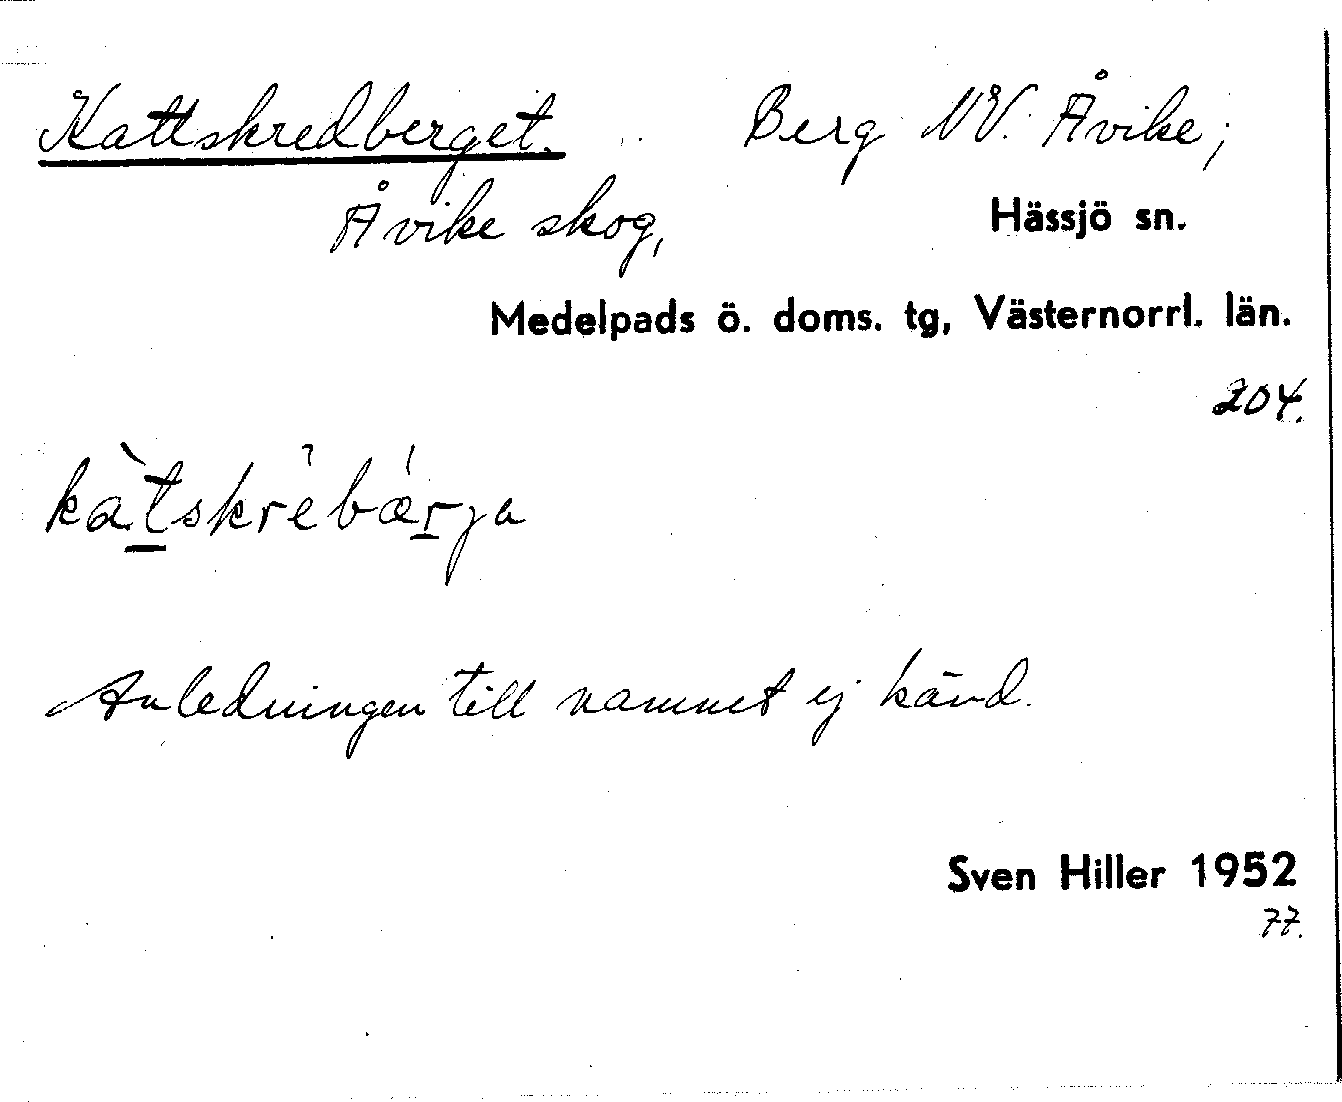 Kattskredberget. Berg NV. Åvike;
Åvike skog, Hässjö sn.
Medelpads ö. doms. tg, Västernorrl. län.
204.
kàt̠skrèbǽr̠ja
Anledningen till namnet ej känd.
Sven Hiller 1952
77.